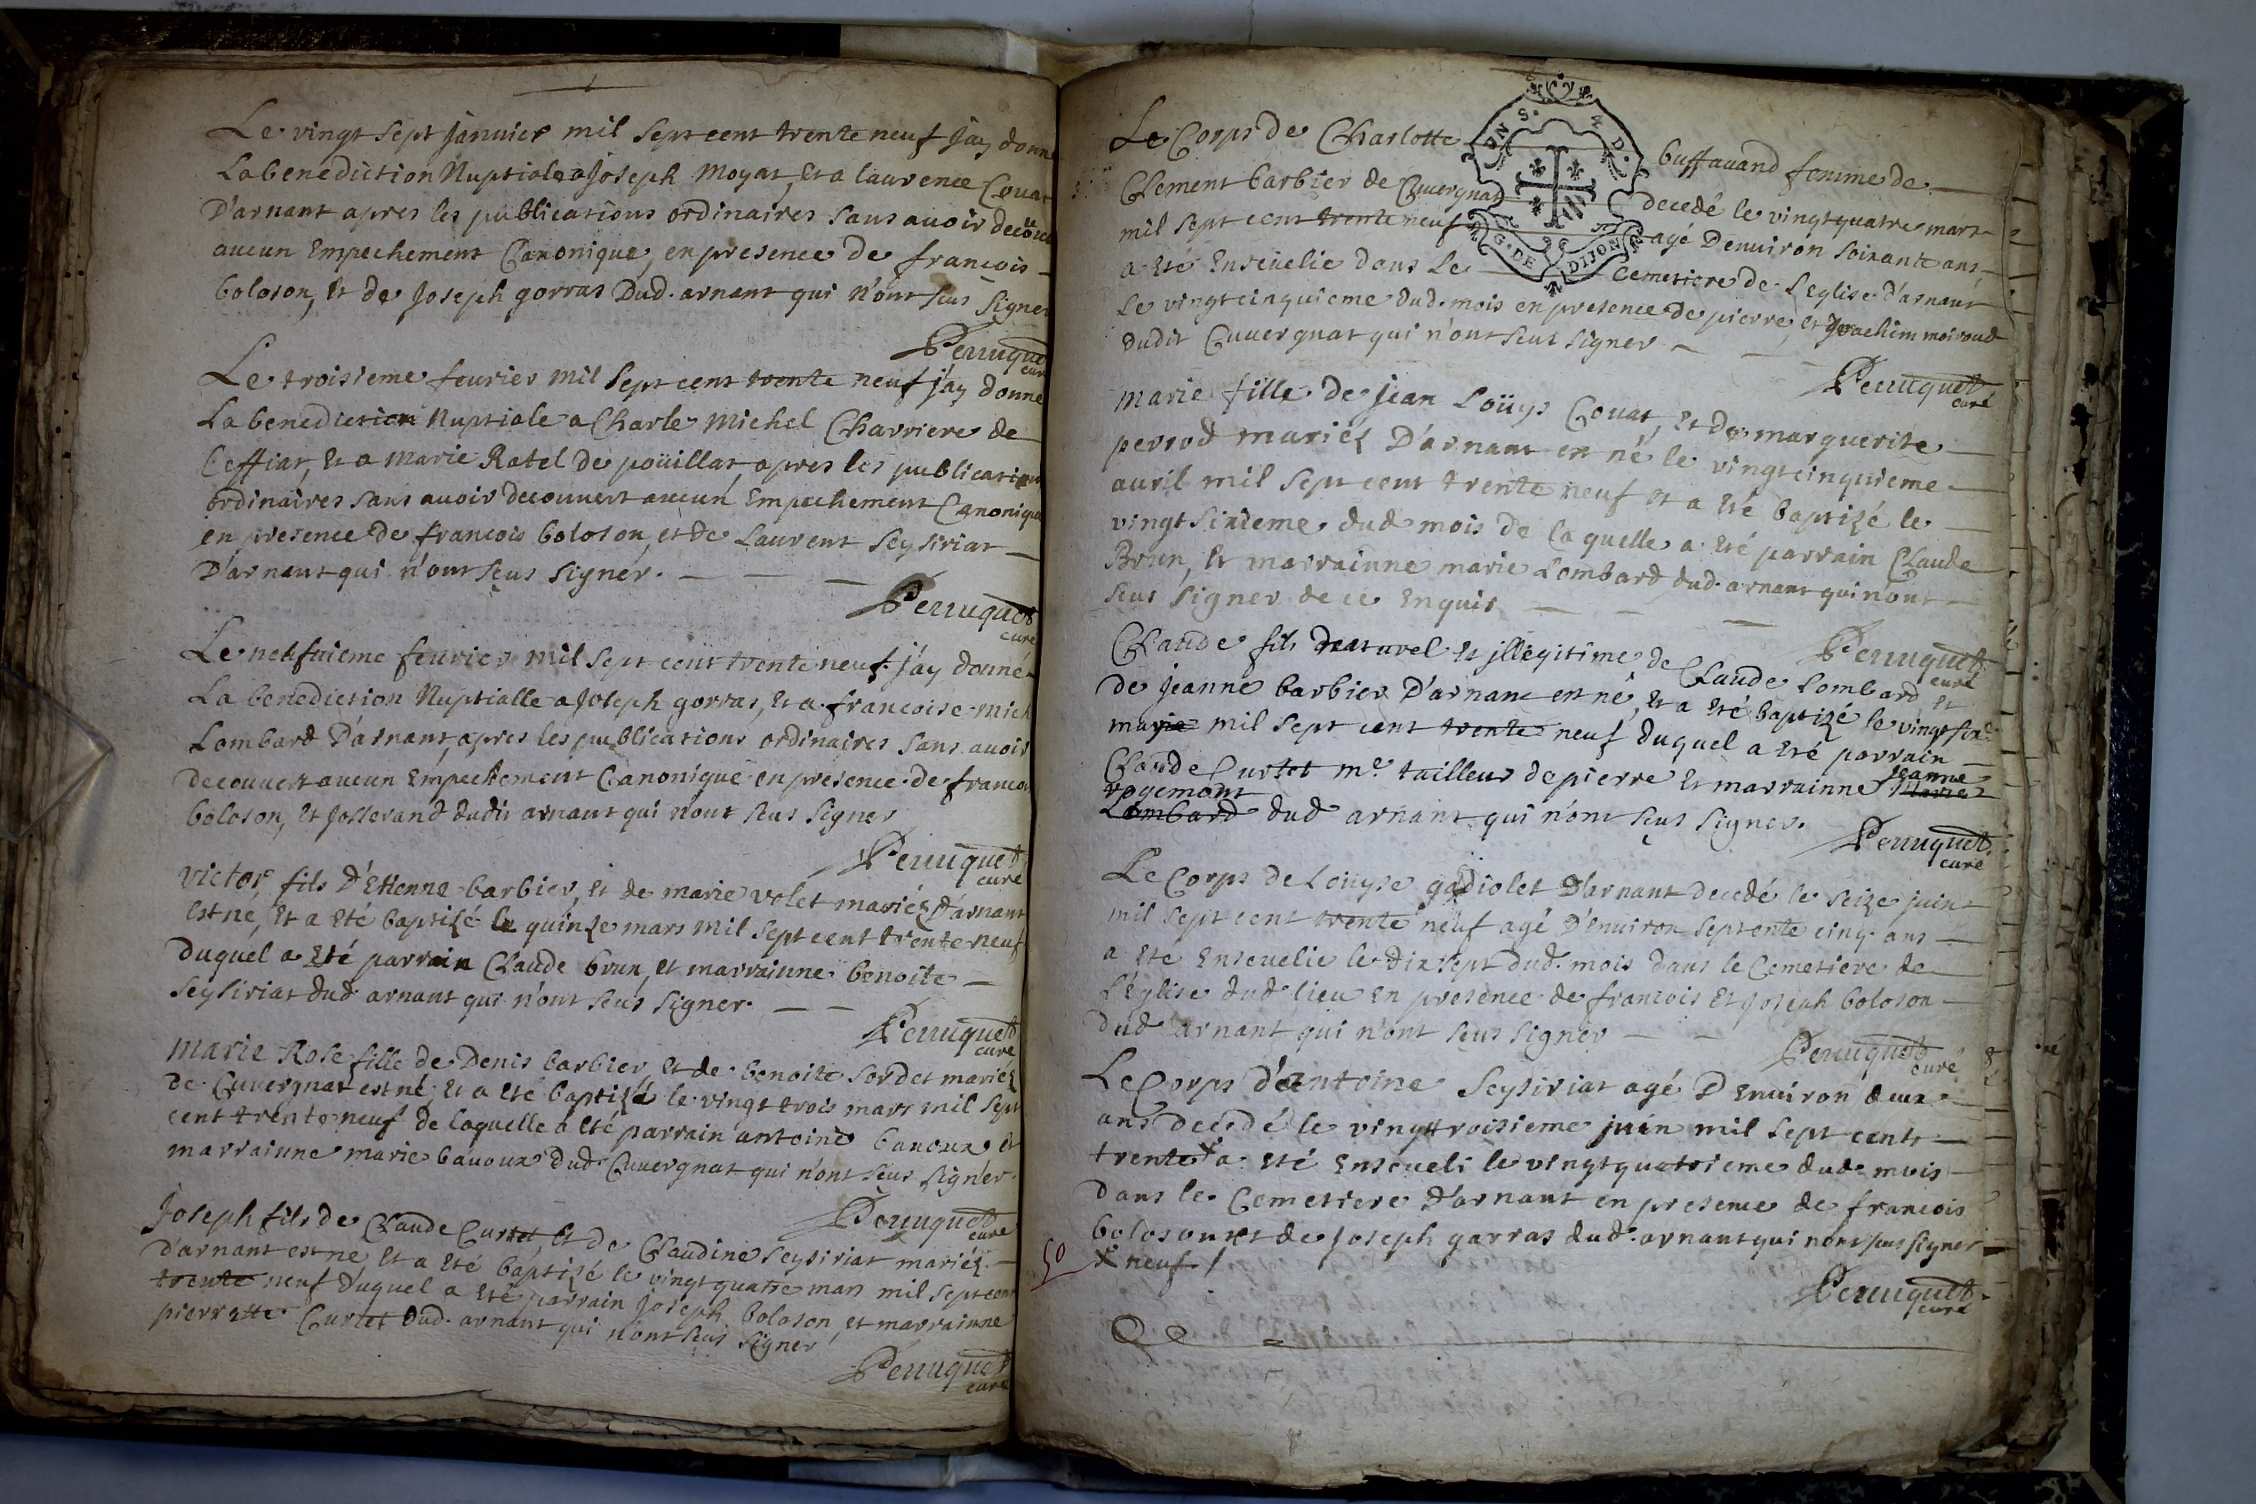 Le vingt sept janvier mil sept cent trente neuf jay donn
La benediction Nuptiale a Joseph Moyat, et a laurence Couat
D'arnant apres les publications ordinaires sans avoir decou
aucun Empechement Canonique, en presence de francois
boloson, et de Joseph gorras Dud. arnant qui n'ont scus signer
Perruquet
curé
Le troisieme fevrier mil sept cent trente neuf j'ay donne
La benediction Nuptiale a Charle Michel Charriere de
Ceffiat, et a Marie Ratel de poüillat apres les publication
ordinaires sans avoir decouvert aucun Empechement Canonique
en presence de francois boloson, et de Laurent Seysiriat
D'arnant qui n'ont scus signer.
Perruquet
curé
Le neufuieme fevrier mil sept cent trente neuf j'ay donné
La benediction Nuptialle a Joseph gorras, et a francoise mich
Lombard D'arnant, apres les publications ordinaires sans avoir
decouvert aucun Empechement Canonique en presence de francoi
boloson, et Josserand dudit arnant qui n'ont scus signer
Perruquet
curé
Victor fils d'Etienne barbier, et de marie volet mariéz D'arnant
est né, et a eté baptizé le quinze mars mil sept cent trente neuf
duquel a eté parrain Claude brun, et marrainne benoite
Seysiriat dud. arnant qui n'ont scus signer.
Perruquet
curé
Marie Rose fille de Denis barbier, et de benoite Sordet mariéz
de Cuvergnat est né, et a eté baptizé le vingt trois mars mil sept
cent trente neuf de laquelle a eté parrain antoine bavoux et
marrainne marie bavoux dud. Cuvergnat qui n'ont scus signer.
Perruquet
curé
Joseph fils de Claude Curtet et de Claudine Seysiriat mariéz
d'arnant est né, et a eté baptizé le vingt quatre mars mil sept cent
trente neuf duquel a eté parrain Joseph boloson, et marrainne
pierrette Curtet dud. arnant qui n'ont scus signer
Perruquet
curé
Le Corps de Charlotte buffavand femme de
Clement barbier de Cuvergnat decedé le vingtquatre mars
mil sept cent trente neuf agé Denviron soixante ans
a eté Ensevelie dans Le Cemetiere de L'eglise d'arnant
Le vingtcinquieme dud. mois en presence de pierre, et Joachim moiroud
dudit Cuvergnat qui n'ont scus signer
G. DE DIJON
Perruquet
curé
Marie fille de jean Loüys Couat, et de marguerite
perrod mariéz D'arnant est né le vingtcinquieme
avril mil sept cent trente neuf et a eté baptizé le
vingt sixieme dud. mois de laquelle a eté parrain Claude
Brun, et marrainne marie Lombard dud. arnant qui n'ont
scus signer de ce Enquis
Perruquet
curé
Claude fils naturel et illegitime de Claude Lombard et
de jeanne barbier D'arnant est né, et a eté baptizé le vingt six
may mil sept cent trente neuf duquel a eté parrain
Claude Curtet me. tailleur de pierre et marrainne Marie Jeanne
rogemont
Lombard dud arnant qui n'ont scus signer.
Perruquet
curé
Le Corps de Loüyse godiolet D'arnant decedé le seize juin
mil sept cent trente neuf agé D'environ septente cinq ans
a eté Ensevelie le dix sept dud. mois dans le Cemetiere de
L'eglise dud lieu en presence de francois et joseph boloson
dud arnant qui n'ont scus signer
Perruquet
curé
Le Corps d'antoine Seysiriat agé D'Environ deux
ans decedé le vingttroisieme juin mil sept cents
trente x a eté Enseveli le vingtquatrieme dud. mois
dans le Cemetiere d'arnant en presence de francois
boloson et de Joseph garras dud. arnant qui n'ont scus signer
x neuf /
50
Perruquet
curé